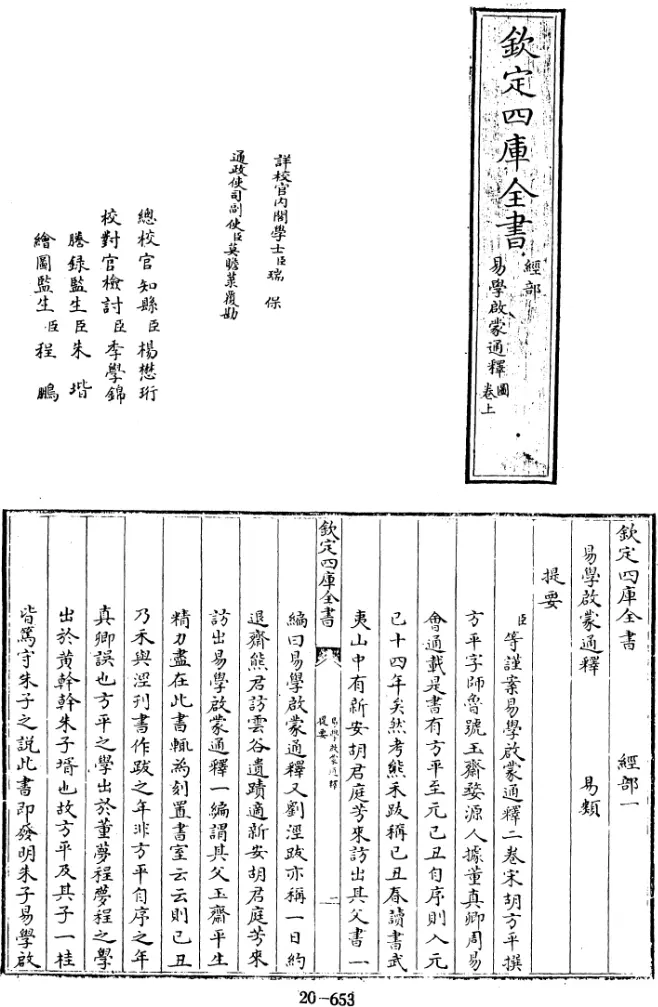 欽定四庫全書
經部
易學啟蒙通釋圖卷上
詳校官內閣學士臣瑞保
通政使司副使臣莫瞻菉覆勘
總校官知縣臣楊懋珩
校對官檢討臣李學錦
謄録監生臣朱堦
繪圖監生臣程鵬
欽定四庫全書 經部一
易學啟蒙通釋 易類
提要
臣等謹案易學啟蒙通釋二卷宋胡方平撰
方平字師魯號玉齋婺源人據董真卿周易
會通載是書有方平至元己丑自序則入元
已十四年矣然考熊禾跋稱己丑春讀書武
夷山中有新安胡君庭芳來訪出其父書一
欽定四庫全書 易學啟蒙通釋 提要 一
編曰易學啟蒙通釋又劉涇跋亦稱一日約
退齋熊君訪雲谷遺蹟適新安胡君庭芳來
訪出易學啟蒙通釋一編謂其父玉齋平生
精力盡在此書輒為刻置書室云云則己丑
乃禾與涇刊書作跋之年非方平自序之年
真卿誤也方平之學出於董夢程夢程之學
出於黄幹幹朱子壻也故方平及其子一桂
皆篤守朱子之說此書即發明朱子易學啟
20-653